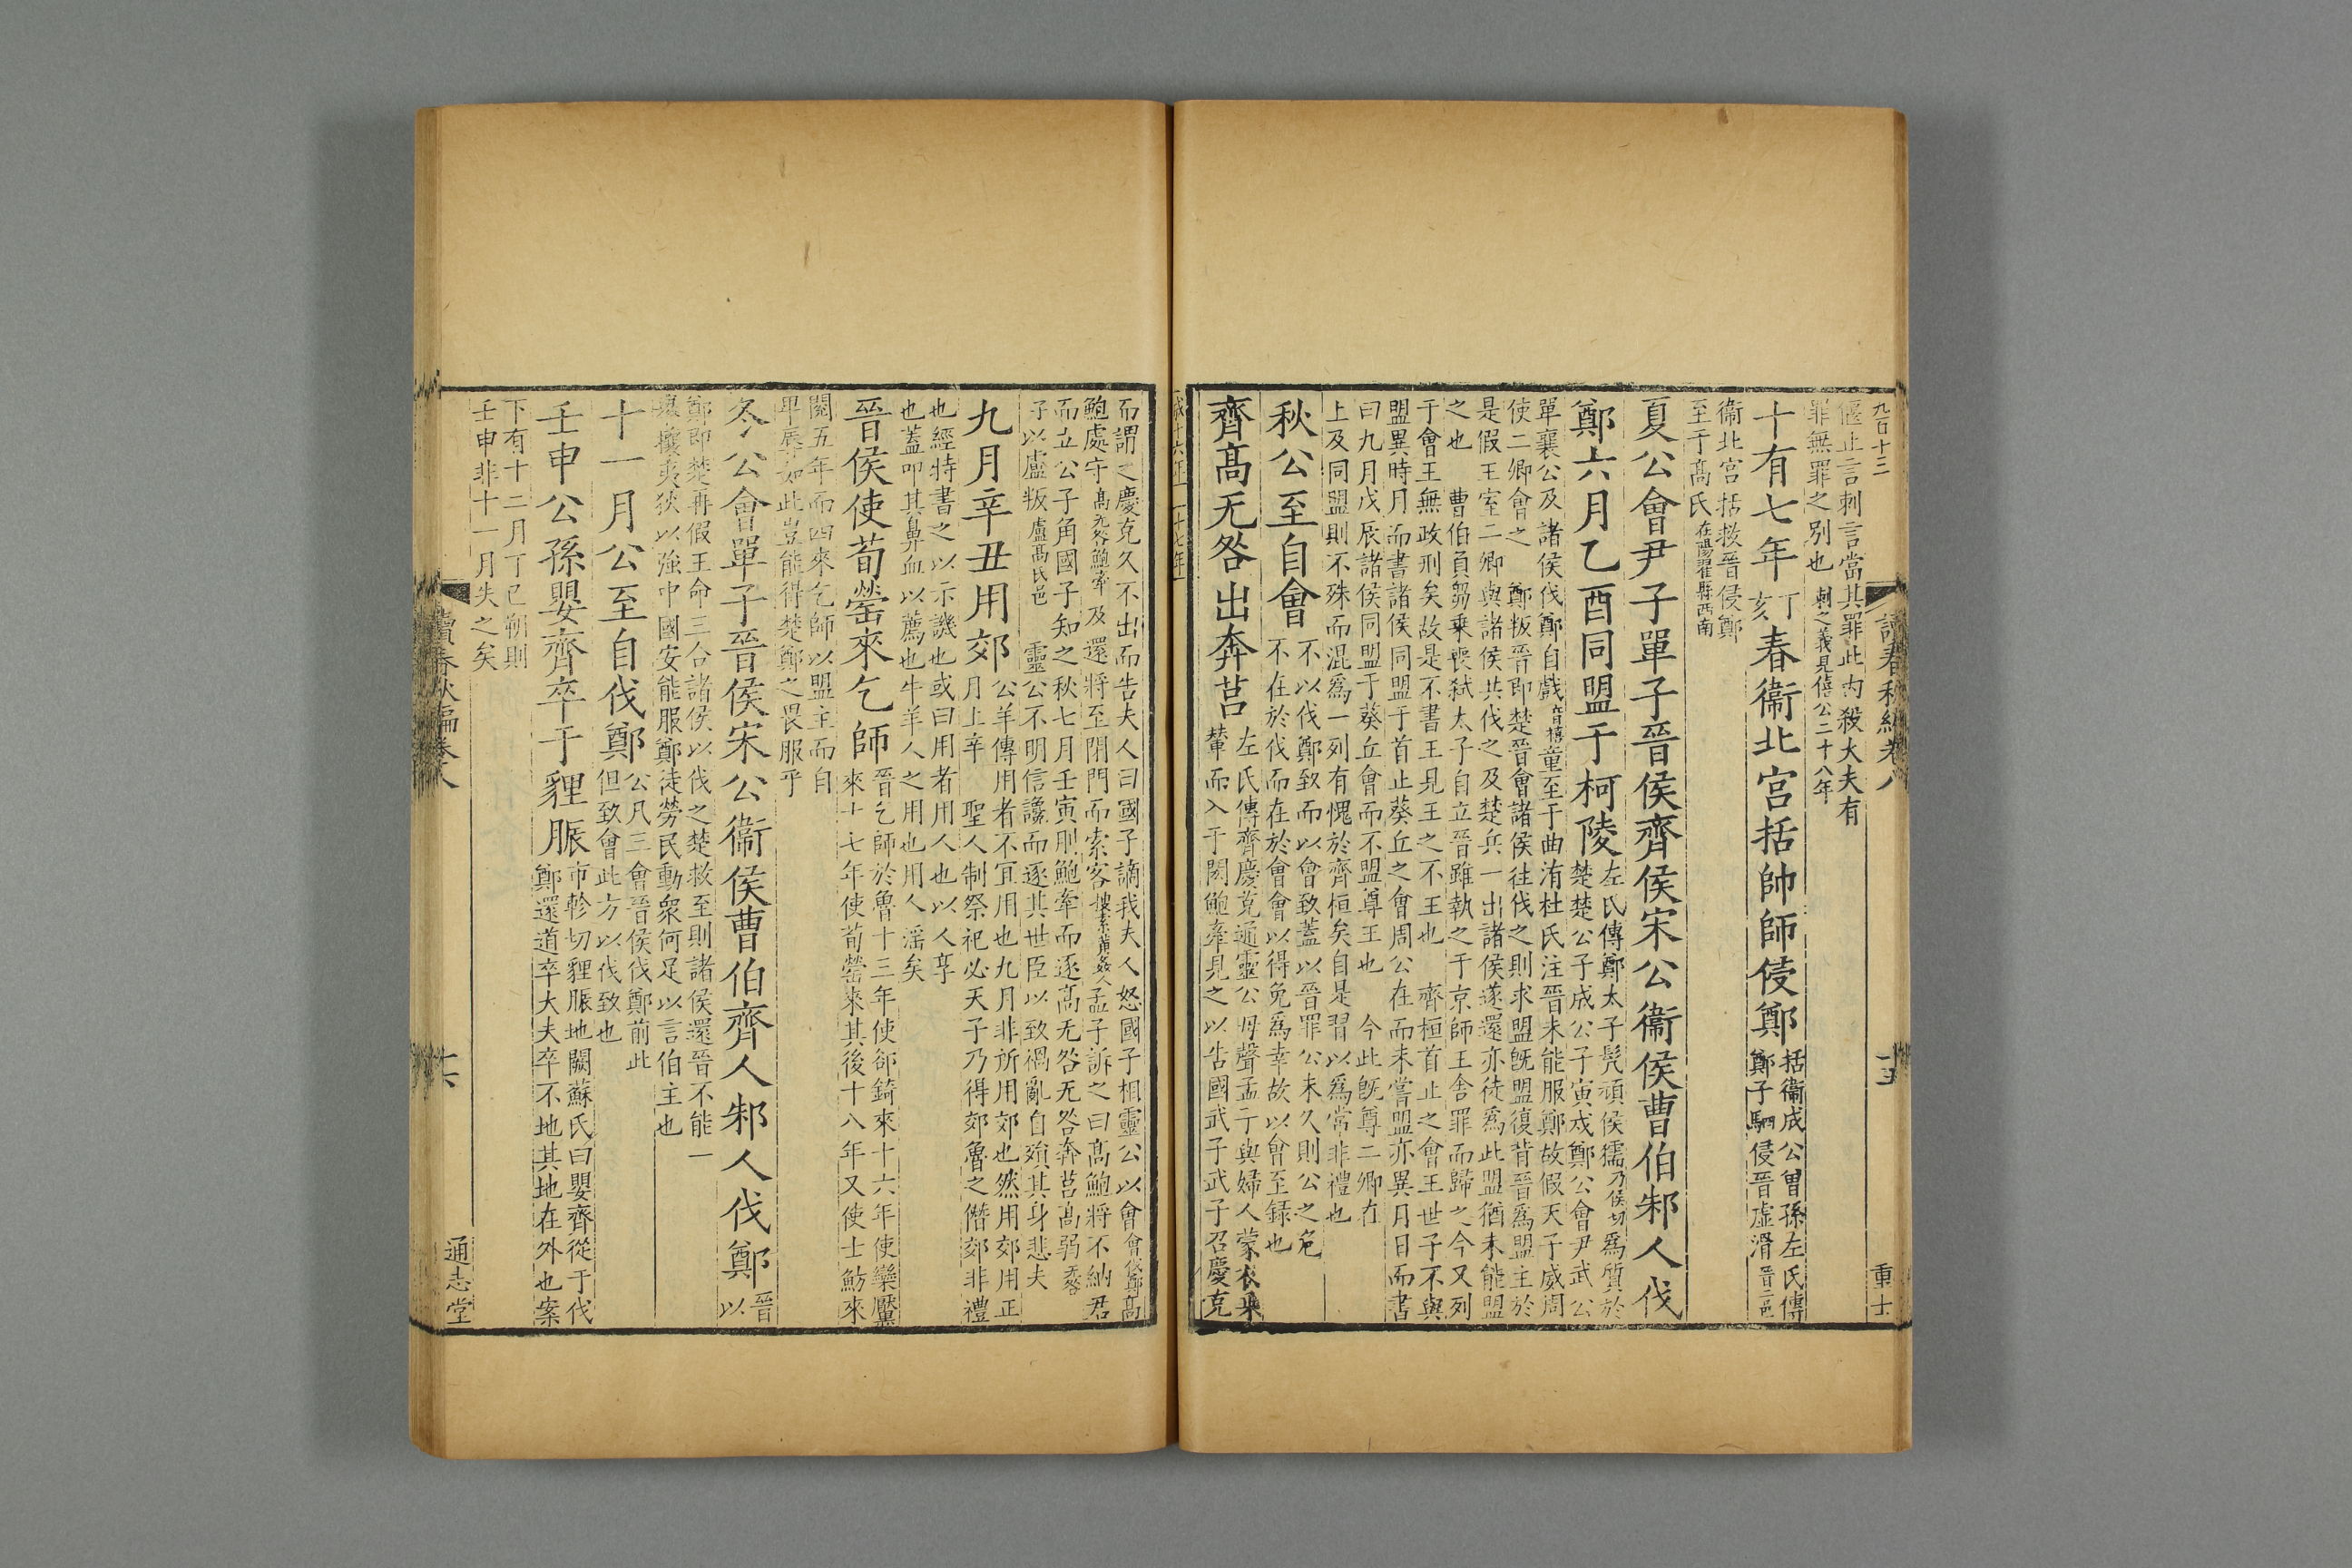 九百十三
讀春秋編卷八
十五
重士
偃止言刺言當其罪此内殺大夫有
罪無罪之别也刺之義見僖公二十八年
十有七年丁亥春衞北宫括帥師侵鄭括衞成公曽孫左氏傳
鄭子駟侵晉虚滑晉二邑
衞北宫括救晉侵鄭
至于髙氏在陽翟縣西南
夏公會尹子單子晉侯齊侯宋公衞侯曹伯邾人伐
鄭六月乙酉同盟于柯陵左氏傳鄭太子髠頑侯獳乃侯切爲質於
楚楚公子成公子寅戍鄭公會尹武公
單襄公及諸侯伐鄭自戲音僖童至于曲洧杜氏注晉未能服鄭故假天子威周
使二卿會之 鄭叛晉即楚晉會諸侯往伐之則求盟旣盟復背晉爲盟主於
是假王室二卿與諸侯共伐之及楚兵一出諸侯遂還亦徒爲此盟猶未能盟
之也 曹伯負芻乗喪弑太子自立晉雖執之于京師王舍罪而歸之今又列
于會王無政刑矣故是不書王見王之不王也 齊桓首止之會王世子不與
盟異時月而書諸侯同盟于首止葵丘之會周公在而未嘗盟亦異月日而書
曰九月戊辰諸侯同盟于葵丘會而不盟尊王也 今此旣尊二卿在
上及同盟則不殊而混爲一列有愧於齊桓矣自是習以爲常非禮也
秋公至自會不以伐鄭致而以會致蓋以晉罪公未久則公之危
不在於伐而在於會會以得免爲幸故以會至録也
齊髙无咎出奔莒左氏傳齊慶克通靈公母聲孟子與婦人蒙衣乗
輦而入于閎鮑牽見之以告國武子武子召慶克
成十六年 十七年
而謂之慶克久不出而告夫人曰國子謫我夫人怒國子相靈公以會會伐鄭髙
鮑處守髙无咎鮑牽及還將至閉門而索客搜索蒐姦人孟子訴之曰髙鮑將不納君
而立公子角國子知之秋七月壬寅刖鮑牽而逐髙无咎无咎奔莒髙弱无咎
子以盧叛盧髙氏邑 靈公不明信讒而逐其世臣以致禍亂自殞其身悲夫
九月辛丑用郊公羊傳用者不宜用也九月非所用郊也然用郊用正
月上辛 聖人制祭祀必天子乃得郊魯之僭郊非禮
也經特書之以示譏也或曰用者用人也以人享
也蓋叩其鼻血以薦也牛羊人之用也用人滛矣
晉侯使荀罃來乞師晉乞師於魯十三年使郤錡來十六年使欒黶
來十七年使荀罃來其後十八年又使士魴來
閲五年而四來乞師以盟主而自
卑辰如此豈能得楚鄭之畏服乎
冬公會單子晉侯宋公衞侯曹伯齊人邾人伐鄭晉
以
鄭即楚再假王命三合諸侯以伐之楚救至則諸侯還晉不能一
攘夷狄以強中國安能服鄭徒勞民動衆何足以言伯主也
十一月公至自伐鄭公凡三會晉侯伐鄭前此
但致會此方以伐致也
壬申公孫嬰齊卒于貍脤市軫切貍脤地闕蘇氏曰嬰齊從于伐
鄭還道卒大夫卒不地其地在外也案
下有十二月丁巳朔則
壬申非十一月失之矣
讀春秋編卷八
十六
通志堂